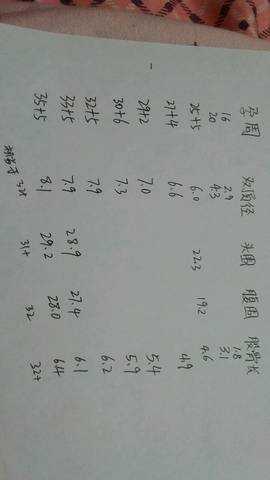 孕周 双顶径 头围 腹围 股骨长
16 2.9 1.8
20 4.3 3.1
25+5 6.0 22.3 192 4.6
27+4 6.6 4.9
29+2 7.0 5.4
30+6 7.3 5.9
32+5 7.9 6.2
33+5 7.9 28.9 27.4 6.1
35+5 8.1 29.2 28.0 6.4
31+ 32 32+